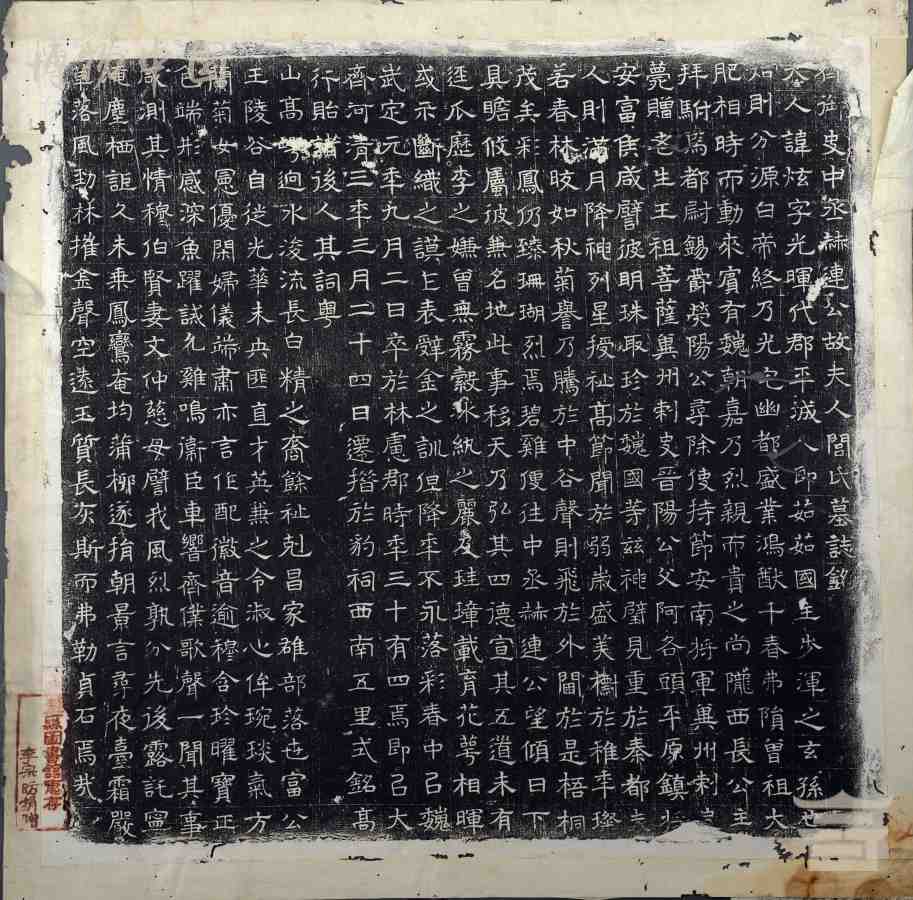 御史中丞赫連公故夫人閭氏墓誌銘
夫人諱炫字光暉代郡平城人即茹茹國主步渾之玄孫也
則分源白帝終乃光宅幽都盛業鴻猷千春弗隋曾祖大
肥相時而動來賓有魏朝嘉乃烈親而貴之尚隴西長公主
拜駙馬都尉錫爵滎陽公尋除使持節安南將軍冀州刺史
薨贈老生王祖菩薩冀州刺史晉陽公父阿各頭平原鎮將
安富侯咸譬彼明珠取珍於魏國等茲神璧見重於秦都夫
人則滿月降神列星授祉高節聞於弱歲盛美樹於稚季璨
若春林晈如秋菊譽乃騰於中谷聲則飛於外閫於是梧桐
茂矣彩鳳仍臻珊瑚烈焉碧雞便往中丞赫連公望傾日下
具瞻攸屬彼兼名地此事移天乃弘其四德宣其五道未有
逕瓜歷李之嫌曾無霧縠冰紈之麗及珪璋載育花萼相暉
或示斷織之謨乍表辭金之訓但降年不永落彩春中以魏
武定元年九月二日卒於林慮郡時年三十有四焉即以大
齊河清三年三月二十四日遷措於豹祠西南五里式銘高
行貽諸後人其詞粵
山高迥水浚流長白精之裔餘祉剋昌家雄部落世富公
王陵谷自徙光華未央匪直才英兼之令淑心侔琬琰氣方
蘭菊女憲優閑婦儀端肅亦言作配徽音逾穆含珍曜寶正
色端形感深魚躍誠允雞鳴衛臣車響齊僕歌聲一聞其事
測其情穆伯賢妻文仲慈母譬我風烈孰分先後露託寧
塵栖詎久未乘鳳鸞奄均蒲柳逐掩朝景言尋夜臺霜嚴
草落風勁林摧金聲空遠玉質長灰斯而弗勒貞石焉哉
縣圖書館惠存